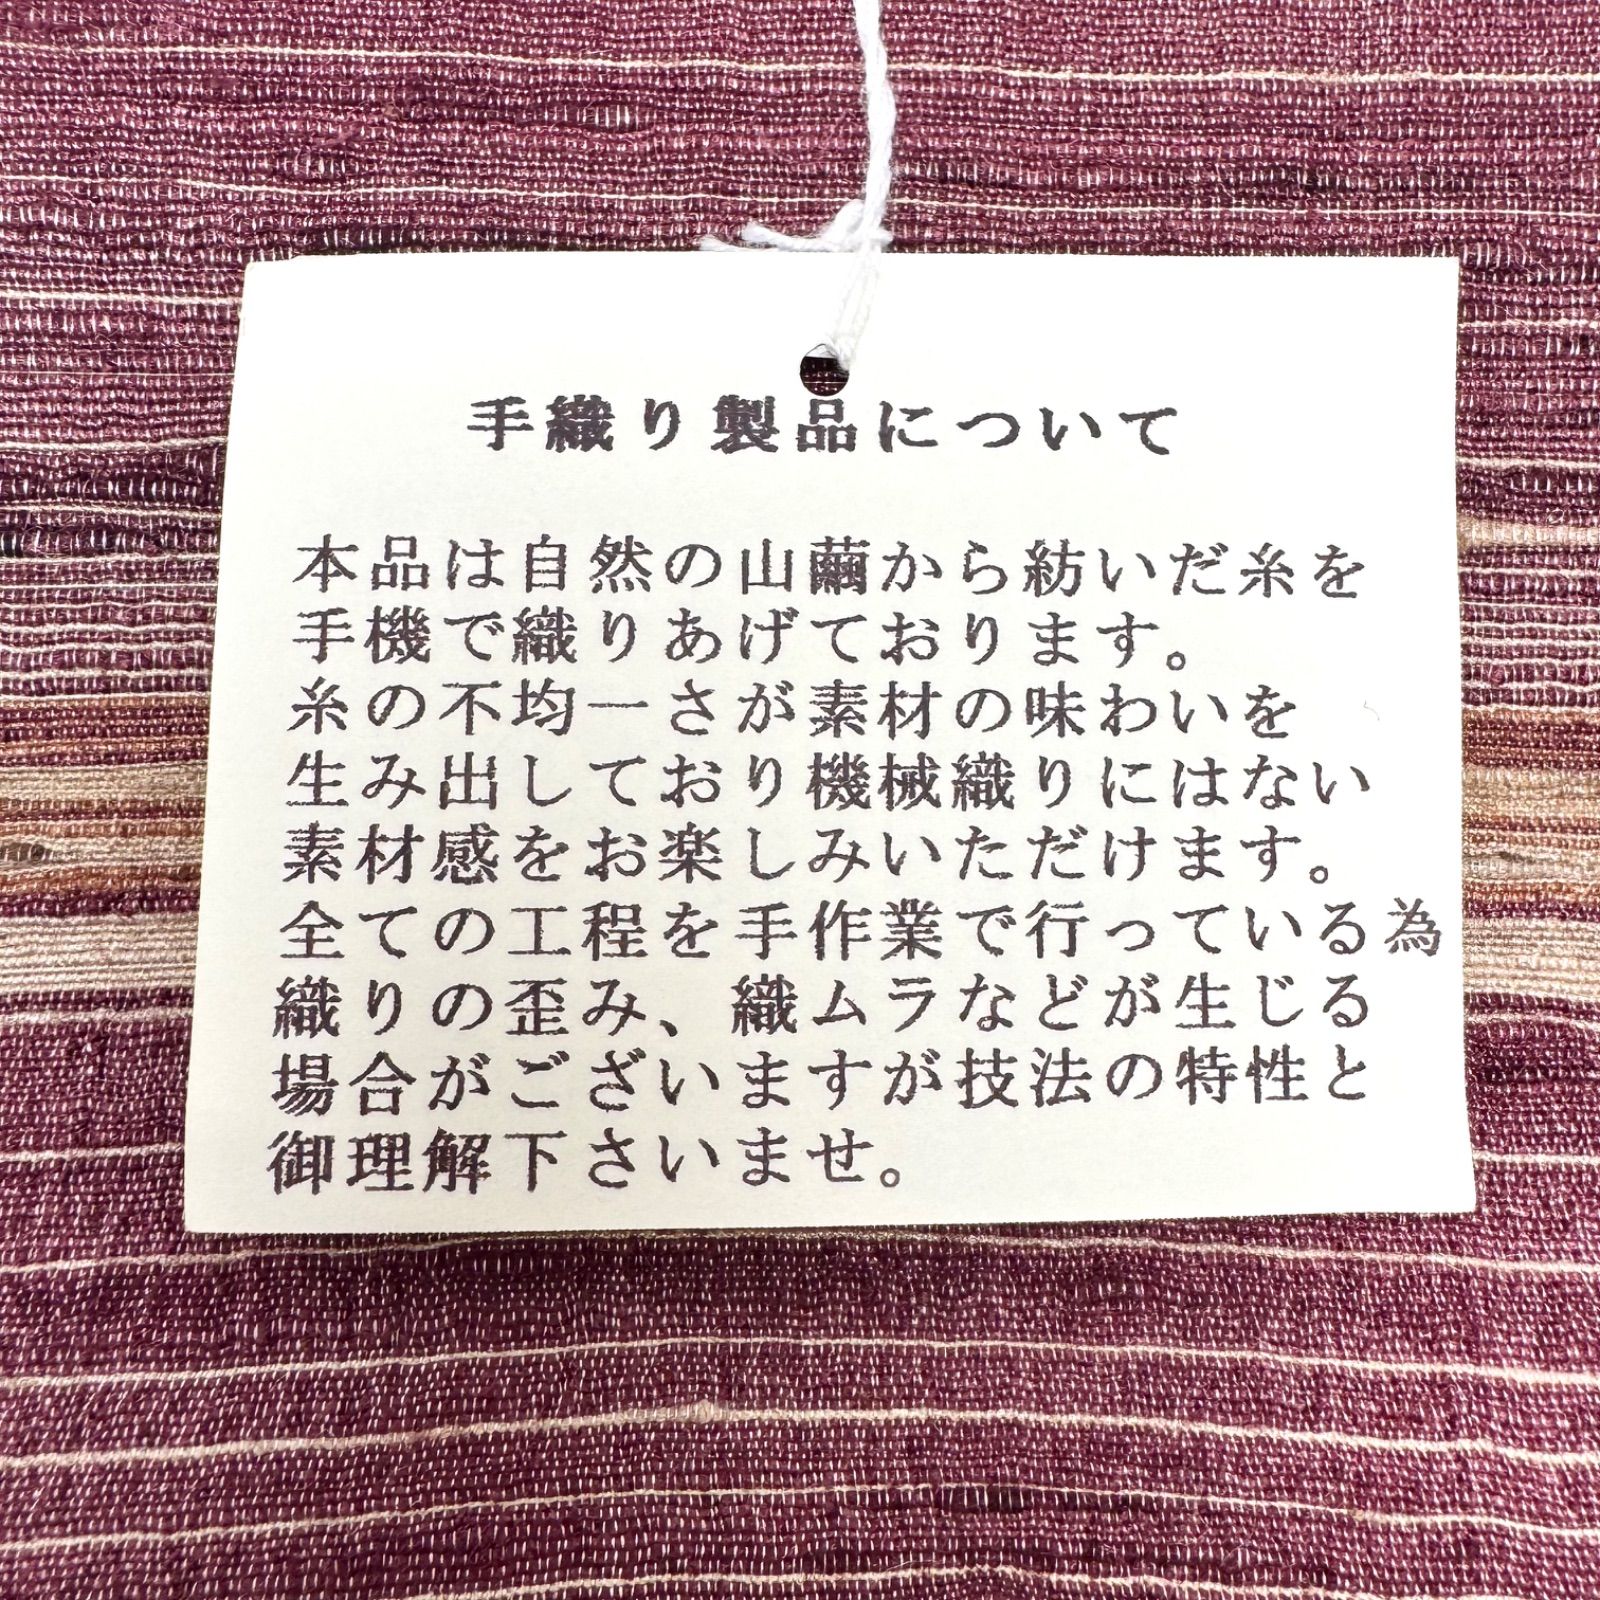 手織り製品について
本品は自然の山繭から紡いだ糸を
手機で織りあげております。
糸の不均一さが素材の味わいを
生み出しており機械織りにはない
素材感をお楽しみいただけます。
全ての工程を手作業で行っている為
織りの歪み、織ムラなどが生じる
場合がございますが技法の特性と
御理解下さいませ。